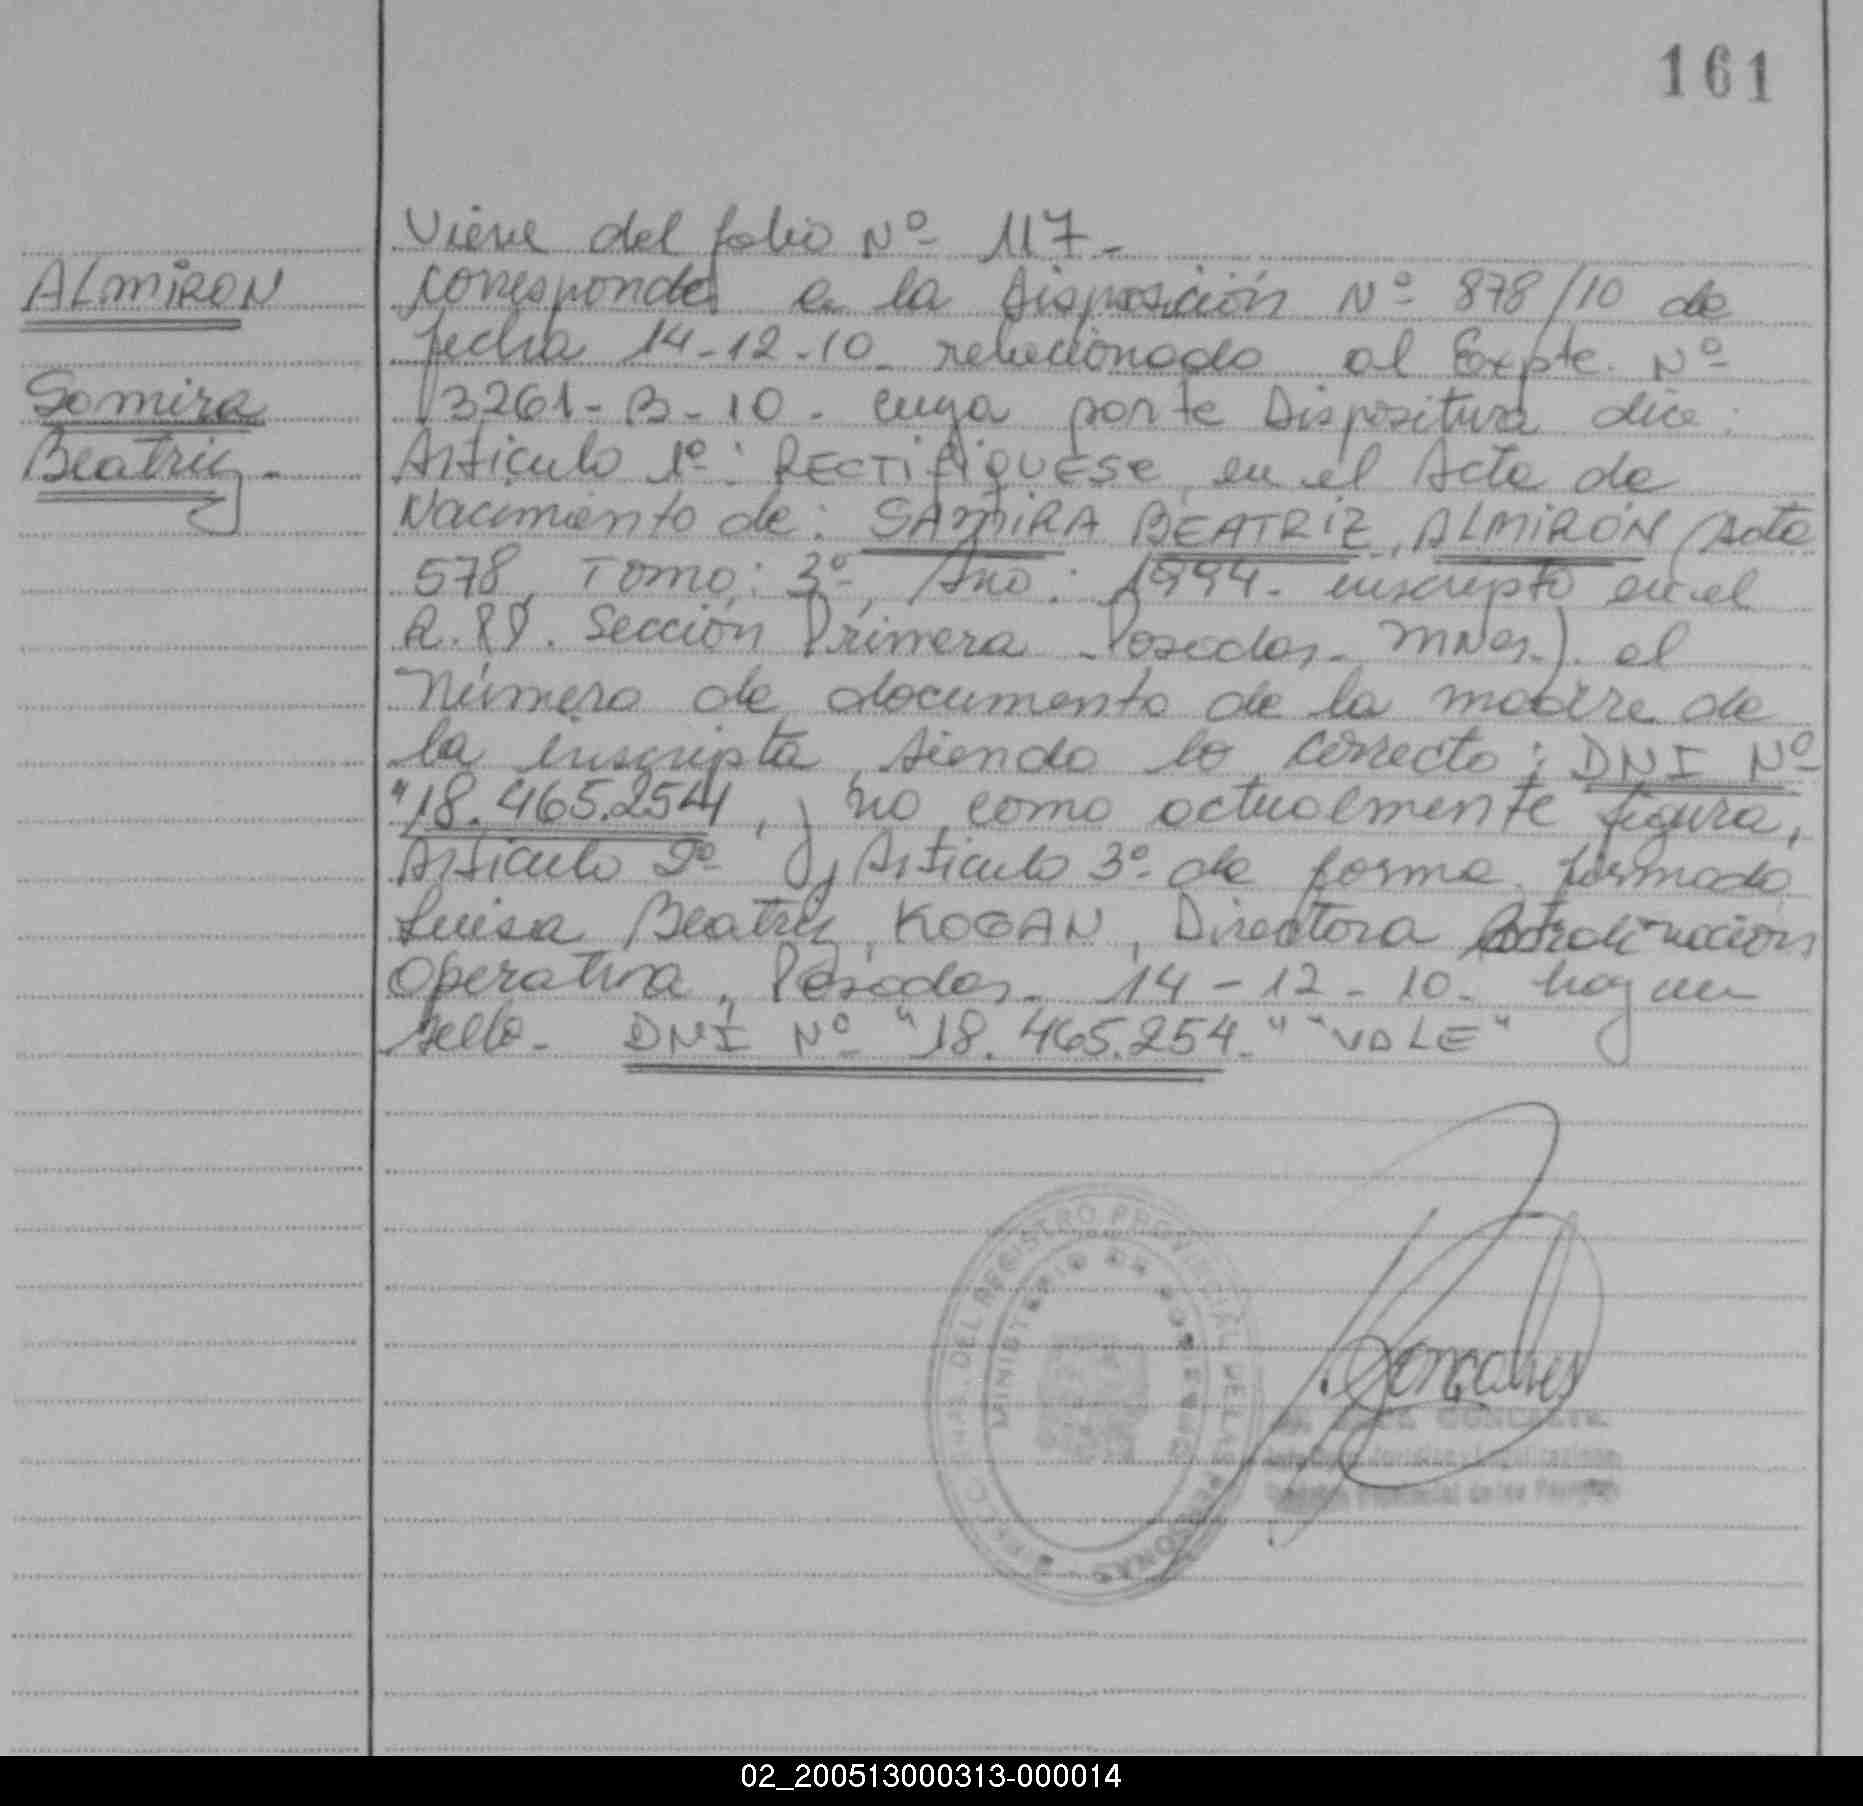 161
Viene del folio Nº 117-
ALMIRON
Corresponde a la disposición Nº 878/10 de
fecha 14-12-10 relacionado al Expte. Nº
Samira
3261-B-10. cuya parte Dispositiva dice:
Beatriz-
Artículo 1º: RECTIFIQUESE, en el Acta de
Nacimiento de: SAMIRA BEATRIZ, ALMIRÓN (Acta
578, Tomo: 3º, Año: 1994- inscripto en el
Sección Primera Posadas- MNes.) el
Número de documento de la madre de
la inscripta siendo lo correcto: DNI Nº
"18.465.254, y no como actualmente figura,
Artículo 2º y Artículo 3º de forma, firmado
Luisa Beatriz, KOGAN, Directora Coordinación
Operativa, Posadas- 14-12-10- hay un
sello- DNI Nº "18.465.254-" "VALE"
DEL REGISTRO PROVINCIAL DE LAS PERSONAS
MINISTERIO DE GOBIERNO
Goncalves
02_200513000313-000014